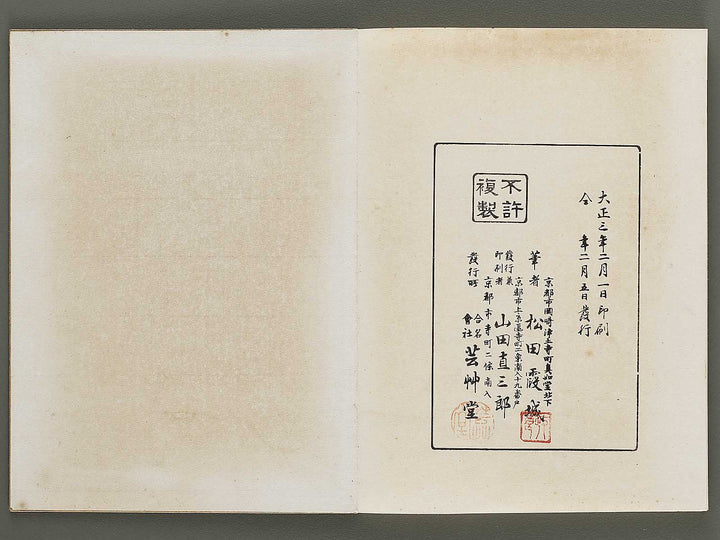 大正三年二月一日印刷
仝 年二月五日發行
不許
複製
京都市岡崎町真如堂北下
筆者 松田霞城
京都市上京區寺町二條南入十九番戸
發行兼
印刷者 山田直三郎
京都市寺町二條南入
發行所 合名
會社 芸艸堂